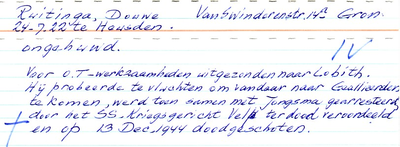 Ruitinga, Douwe VanSwinderenstr. 14a Gron.
24-7-22 te Heusden.
ongehuwd.
IV
Voor O.T-werkzaamheden uitgezonden naar Lobith.
Hij probeerde te vluchten om vandaar naar Geallieerden
te komen, werd toen samen met Jungsma gearresteerd
door het SS-Kriegsgericht Velp ter dood veroordeeld
en op 13 Dec. 1944 doodgeschoten.